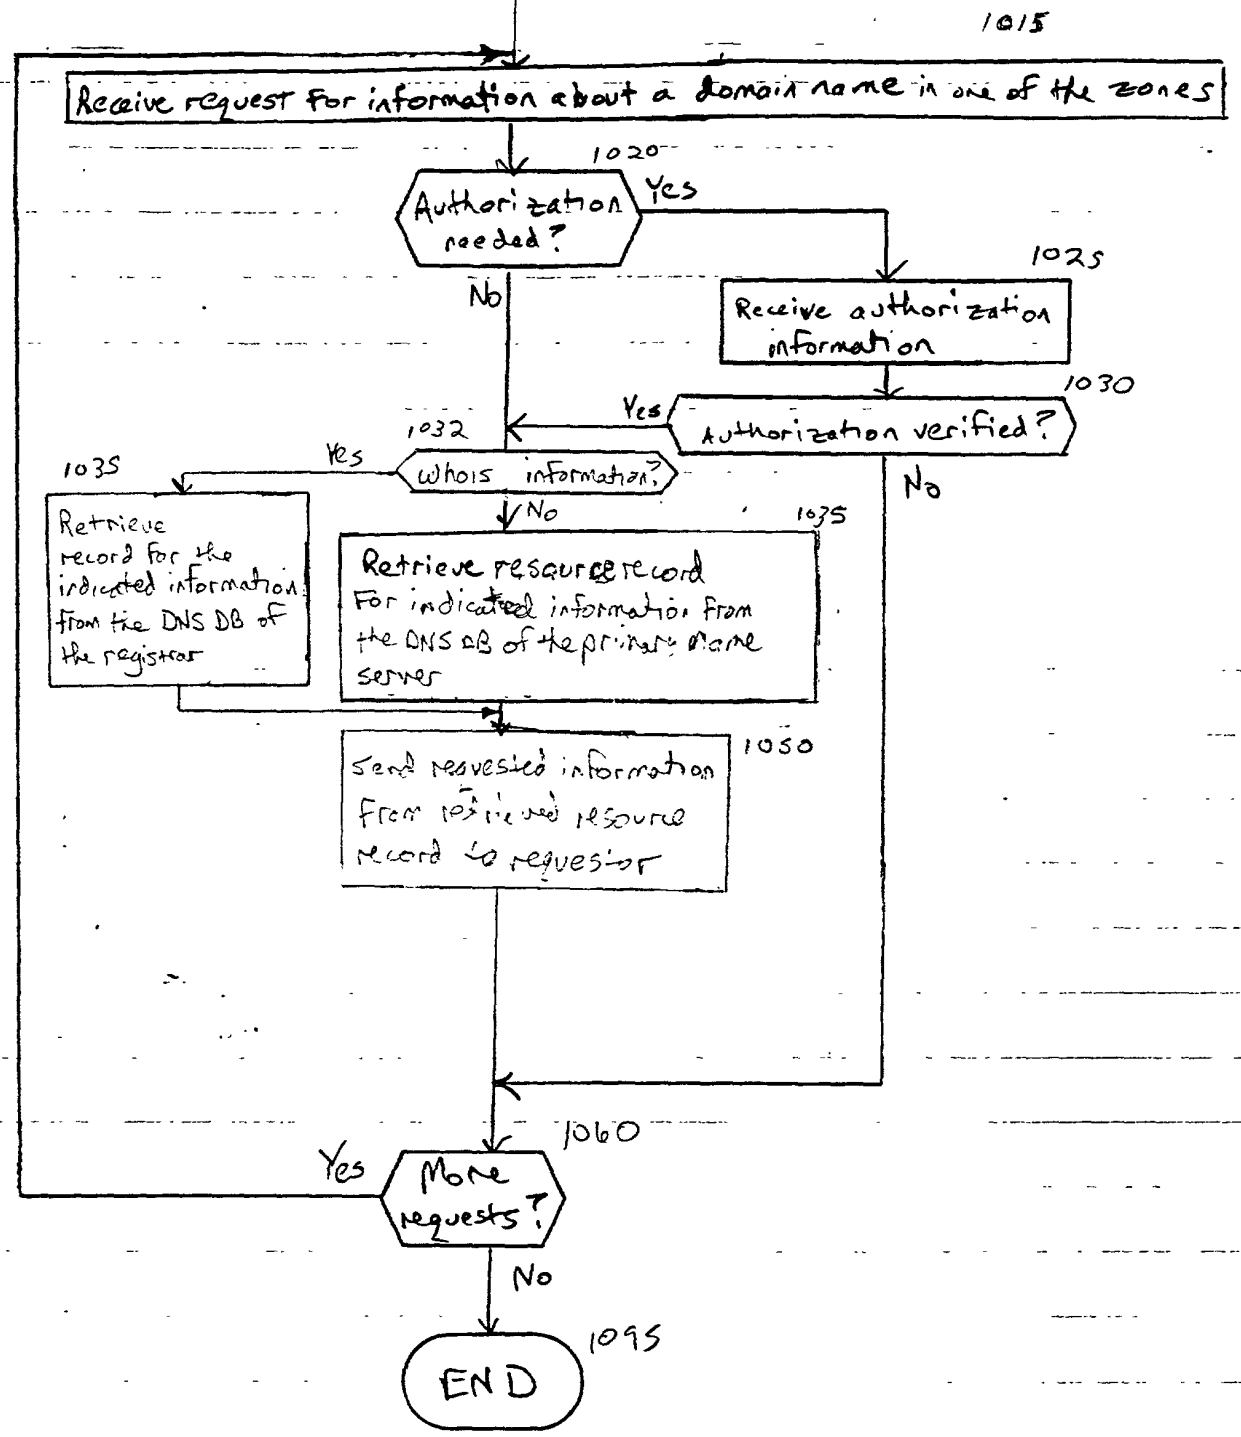 1015
Receive request for information about a domain name in one of the zones
1020
Authorization
needed?
Yes
No
1025
Receive authorization
information
1030
Authorization verified?
Yes
No
1032
Whois information?
Yes
No
1035
Retrieve
record for the
indicated information
from the DNS DB of
the registrar
1035
Retrieve resource record
For indicated information from
the DNS DB of the primary name
server
1050
Send requested information
From retrieved resource
record to requestor
1060
More
requests?
Yes
No
1095
END